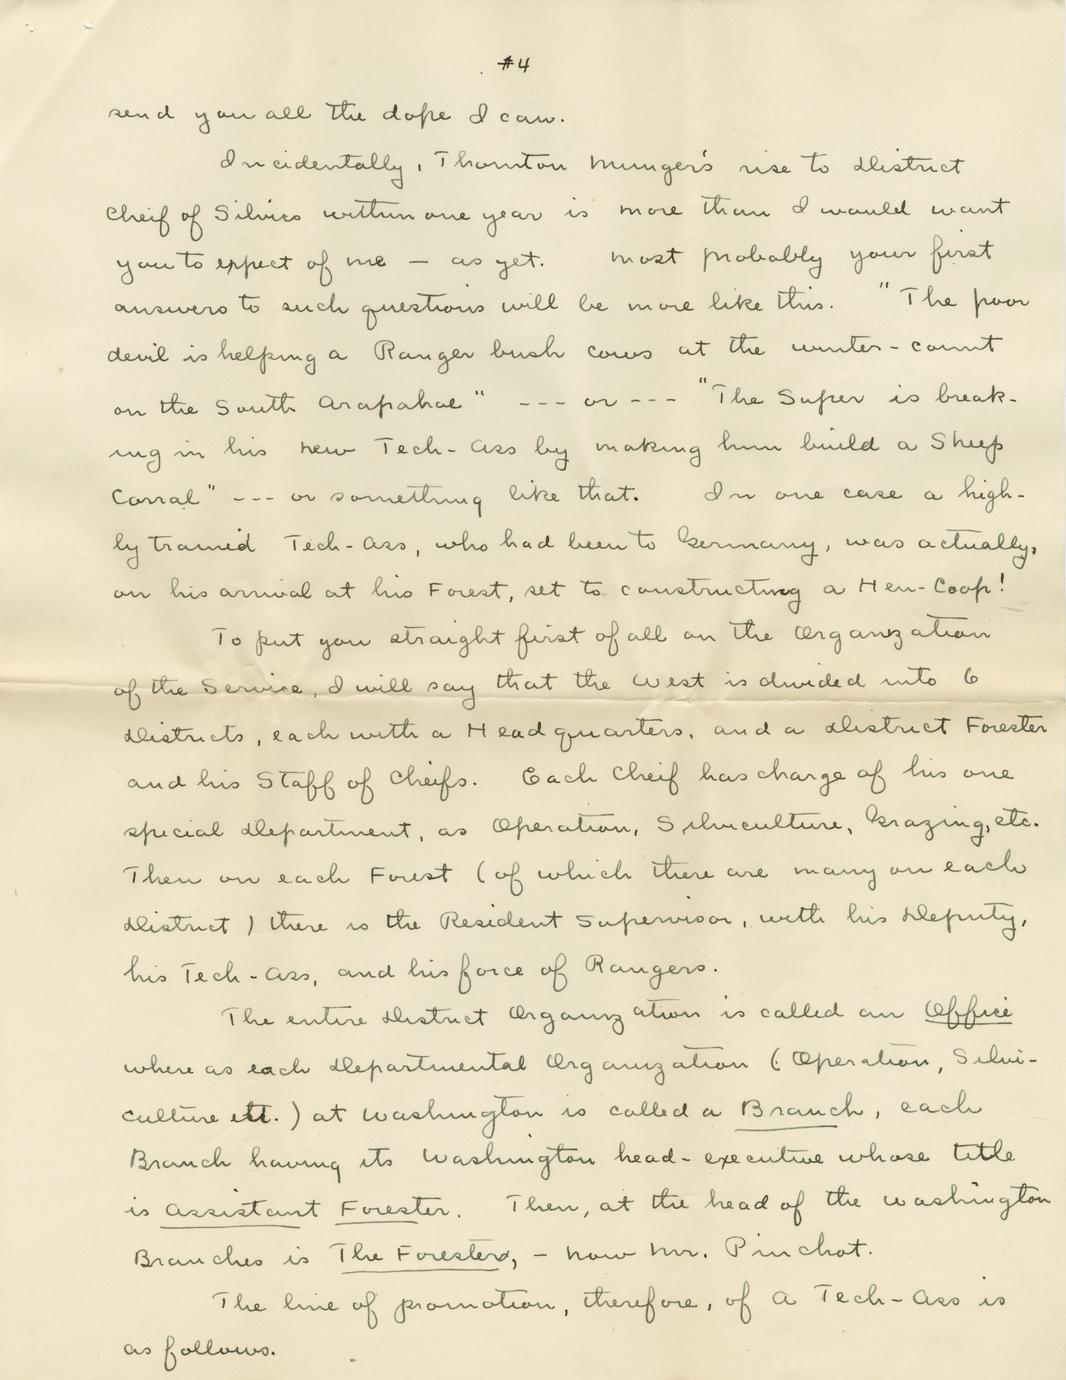 #4
send you all the dope I can.
Incidentally, Thornton Munger's rise to District
Cheif of Silvics within one year is more than I would want
you to expect of me — as yet. Most probably your first
answers to such questions will be more like this. "The poor
devil is helping a Ranger bush cows at the winter-count
on the South Arapahoe" --- or --- "The Super is break-
ing in his new Tech-Ass by making him build a Sheep
Corral" --- or something like that. In one case a high-
ly trained Tech-Ass, who had been to Germany, was actually,
on his arrival at his Forest, set to constructing a Hen-Coop!
To put you straight first of all on the Organization
of the Service, I will say that the West is divided into 6
Districts, each with a Headquarters, and a District Forester
and his Staff of Cheifs. Each Cheif has charge of his one
special Department, as Operation, Silviculture, Grazing, etc.
Then on each Forest (of which there are many on each
District) there is the Resident Supervisor, with his Deputy,
his Tech-Ass, and his force of Rangers.
The entire District Organization is called an Office
where as each Departmental Organization (Operation, Silvi-
culture ett.) at Washington is called a Branch, each
Branch having its Washington head-executive whose title
is Assistant Forester. Then, at the head of the Washington
Branches is The Forester, - now Mr. Pinchot.
The line of promotion, therefore, of a Tech-Ass is
as follows.